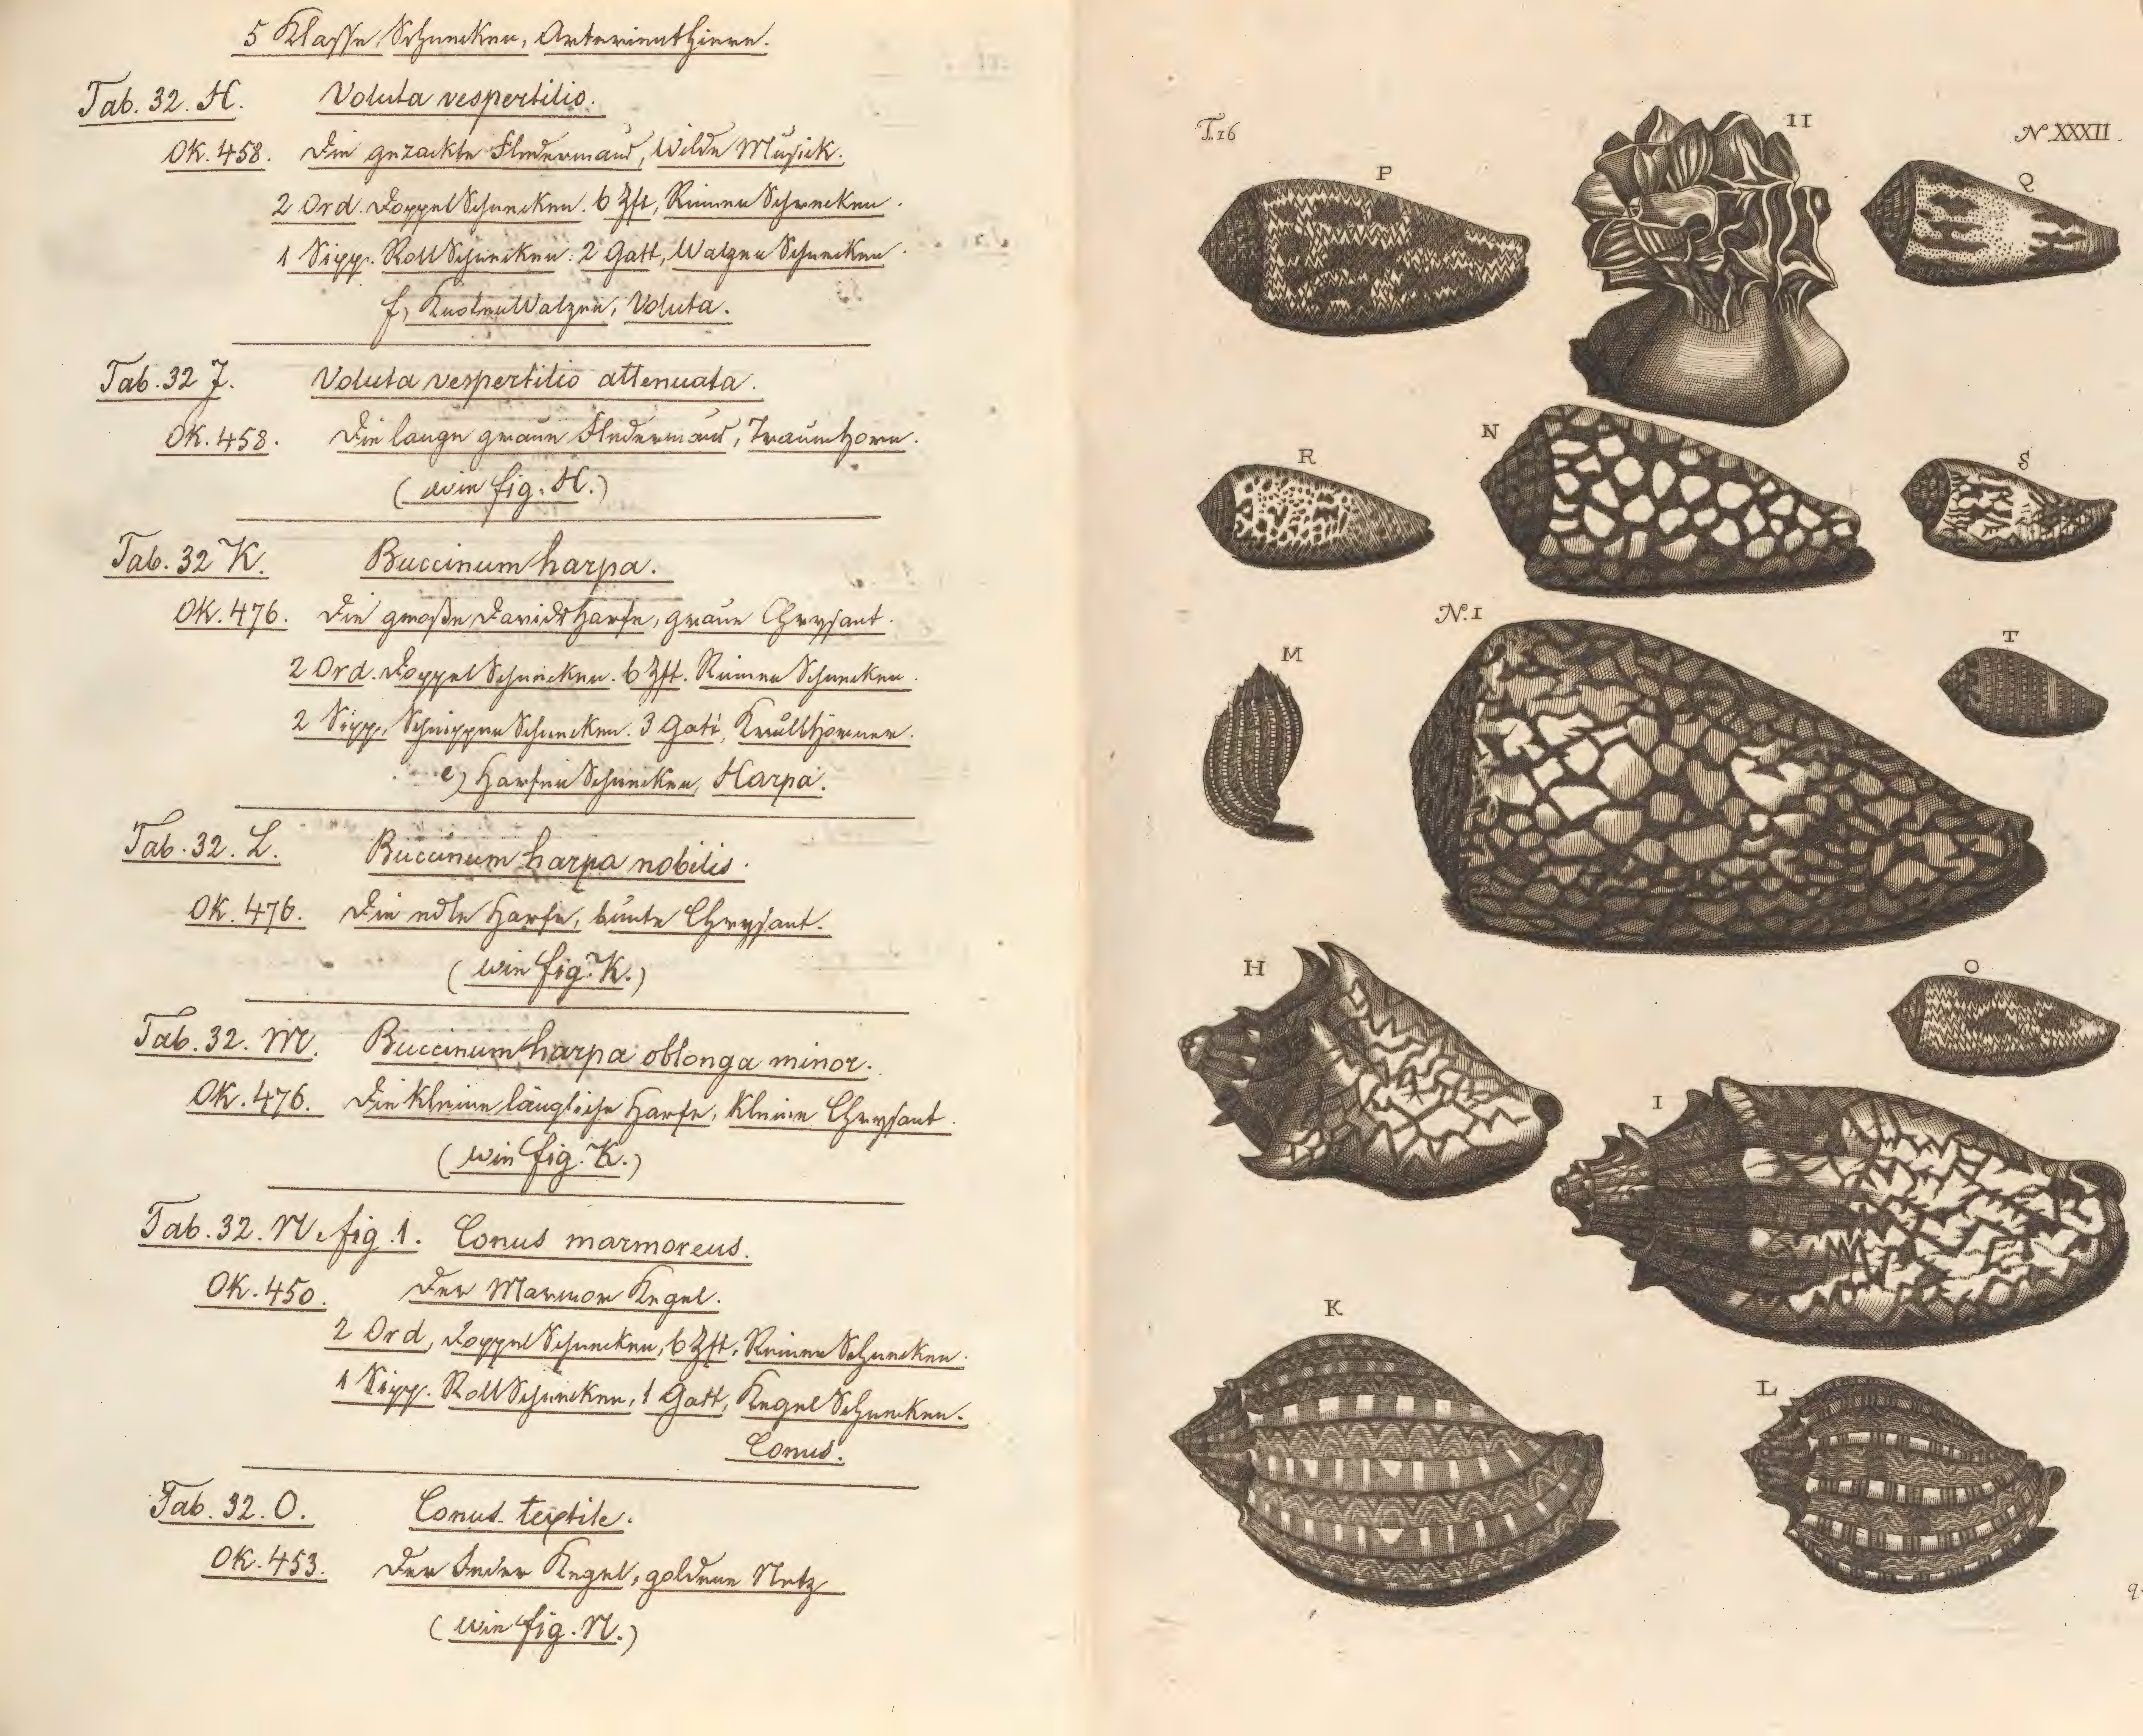 5 Klasse, Schnecken, Arterienthiere.
Tab. 32. H. Voluta vespertilio.
OK. 458. Die gezackte Fledermaus, Wilde Musick.
2 Ord. DoppelSchnecken. 6 Zft, RinnenSchnecken.
1 Sipp. RollSchnecken. 2 Gatt, WalzenSchnecken.
f, KnotenWalzen, Voluta.
Tab. 32 J. Voluta vespertilio attenuata.
OK. 458. Die lange graue Fledermaus, Traumhorn.
(wie fig. H.)
Tab. 32 K. Buccinum harpa.
OK. 476. Die große Davidsharfe, graue Chrysant.
2 Ord. DoppelSchnecken. 6 Zft. RinnenSchnecken.
2 Sipp, SchnippenSchnecken. 3 Gatt, Krullhörner.
e) HarfenSchnecken, Harpa.
Tab. 32. L. Buccinum harpa nobilis.
OK. 476. Die edle Harfe, bunte Chrysant.
(wie fig. K.)
Tab. 32. M. Buccinum harpa oblonga minor.
OK. 476. Die kleine längliche Harfe, kleine Chrysant.
(wie fig. K.)
Tab. 32. N. fig. 1. Conus marmoreus.
OK. 450. Der Marmor Kegel.
2 Ord, DoppelSchnecken, 6 Zft. RinnenSchnecken.
1 Sipp. RollSchnecken, 1 Gatt, KegelSchnecken.
Conus.
Tab. 32. O. Conus textile.
OK. 453. Der Kegel, goldene Netz
(wie fig. N.)
T.16
II
N XXXII.
P
Q
R
N
S
N.1
M
T
H
O
I
K
L